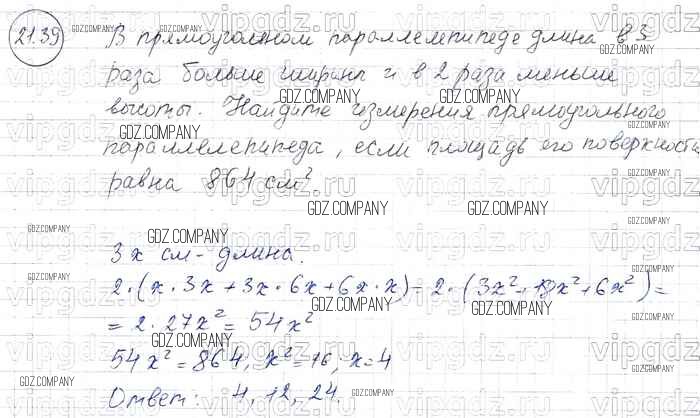 21.39 В прямоугольном параллелепипеде длина в 3
раза больше ширины и в 2 раза меньше
высоты. Найдите измерения прямоугольного
параллелепипеда, если площадь его поверхности
равна 864 см²
3x см - длина.
2·(x·3x+3x·6x+6x·x) = 2·(3x²+18x²+6x²) =
= 2·27x² = 54x²
54x² = 864, x² = 16, x = 4
Ответ: 4, 12, 24.
vipgdz.ru
GDZ.COMPANY